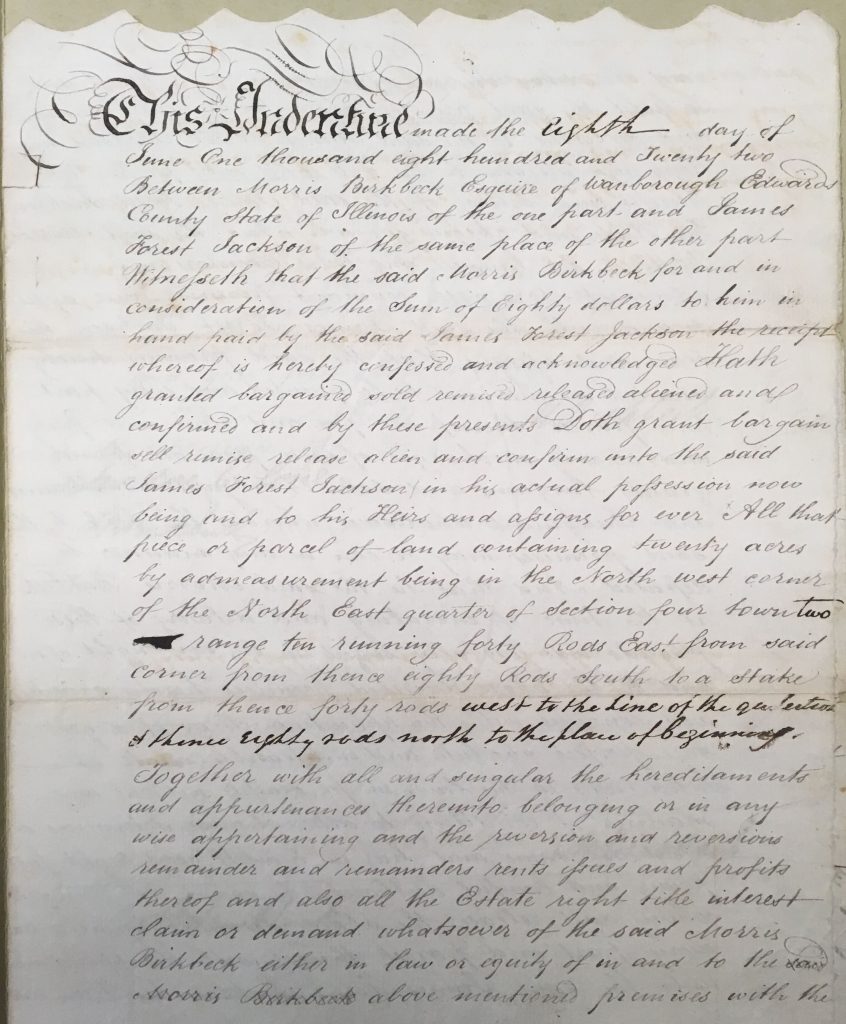 This Indenture made the Eighth day of
June One thousand eight hundred and Twenty two
Between Morris Birkbeck Esquire of Wanborough Edwards
County State of Illinois of the one part and James
Forest Jackson of the same place of the other part
Witnesseth that the said Morris Birkbeck for and in
consideration of the Sum of Eighty dollars to him in
hand paid by the said James Forest Jackson the receipt
whereof is hereby confessed and acknowledged Hath
granted bargained sold remised released aliened and
confirmed and by these presents Doth grant bargain
sell remise release alien and confirm unto the said
James Forest Jackson in his actual possession now
being and to his Heirs and assigns for ever All that
piece or parcel of land containing twenty acres
by admeasurement being in the North west corner
of the North East quarter of Section four town two
range ten running forty Rods East from said
corner from thence eighty Rods South to a Stake
from thence forty rods west to the Line of the qur Section
& thence Eighty rods north to the place of beginning.
Together with all and singular the hereditaments
and appurtenances thereunto belonging or in any
wise appertaining and the reversion and reversions
remainder and remainders rents issues and profits
thereof and also all the Estate right title interest
claim or demand whatsoever of the said Morris
Birkbeck either in law or equity of in and to the said
Morris Birkbeck above mentioned premises with the